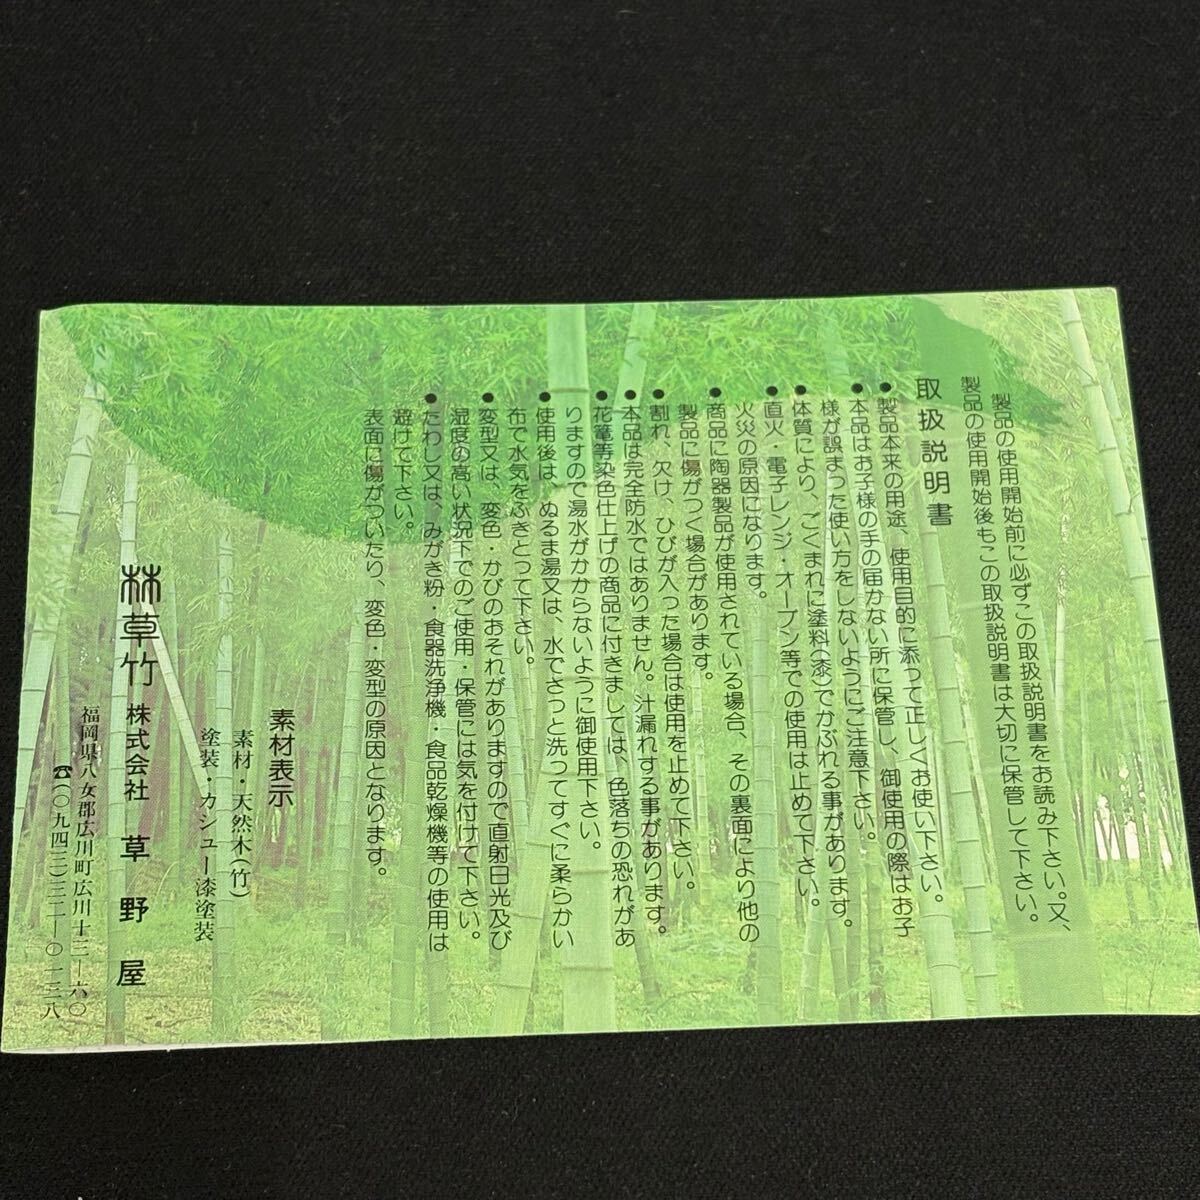 製品の使用開始前に必ずこの取扱説明書をお読み下さい。又、
製品の使用開始後もこの取扱説明書は大切に保管して下さい。
取扱説明書
●製品本来の用途、使用目的に添って正しくお使い下さい。
●本品はお子様の手の届かない所に保管し、御使用の際はお子
様が誤まった使い方をしないようにご注意下さい。
●体質により、ごくまれに塗料(漆)でかぶれる事があります。
●直火・電子レンジ・オーブン等での使用は止めて下さい。
火災の原因になります。
●商品に陶器製品が使用されている場合、その裏面により他の
製品に傷がつく場合があります。
●割れ、欠け、ひびが入った場合は使用を止めて下さい。
●本品は完全防水ではありません。汁漏れする事があります。
●花篭等染色仕上げの商品に付きましては、色落ちの恐れがあ
りますので湯水がかからないように御使用下さい。
●使用後は、ぬるま湯又は、水でさっと洗ってすぐに柔らかい
布で水気をふきとって下さい。
●変型又は、変色・かびのおそれがありますので直射日光及び
湿度の高い状況下でのご使用・保管には気を付けて下さい。
●たわし又は、みがき粉・食器洗浄機・食品乾燥機等の使用は
避けて下さい。
表面に傷がついたり、変色・変型の原因となります。
素材表示
素材・天然木(竹)
塗装・カシュー漆塗装
草竹 株式会社 草野屋
福岡県八女郡広川町広川十三ー六〇
☎(〇九四三)三二ー〇一三八